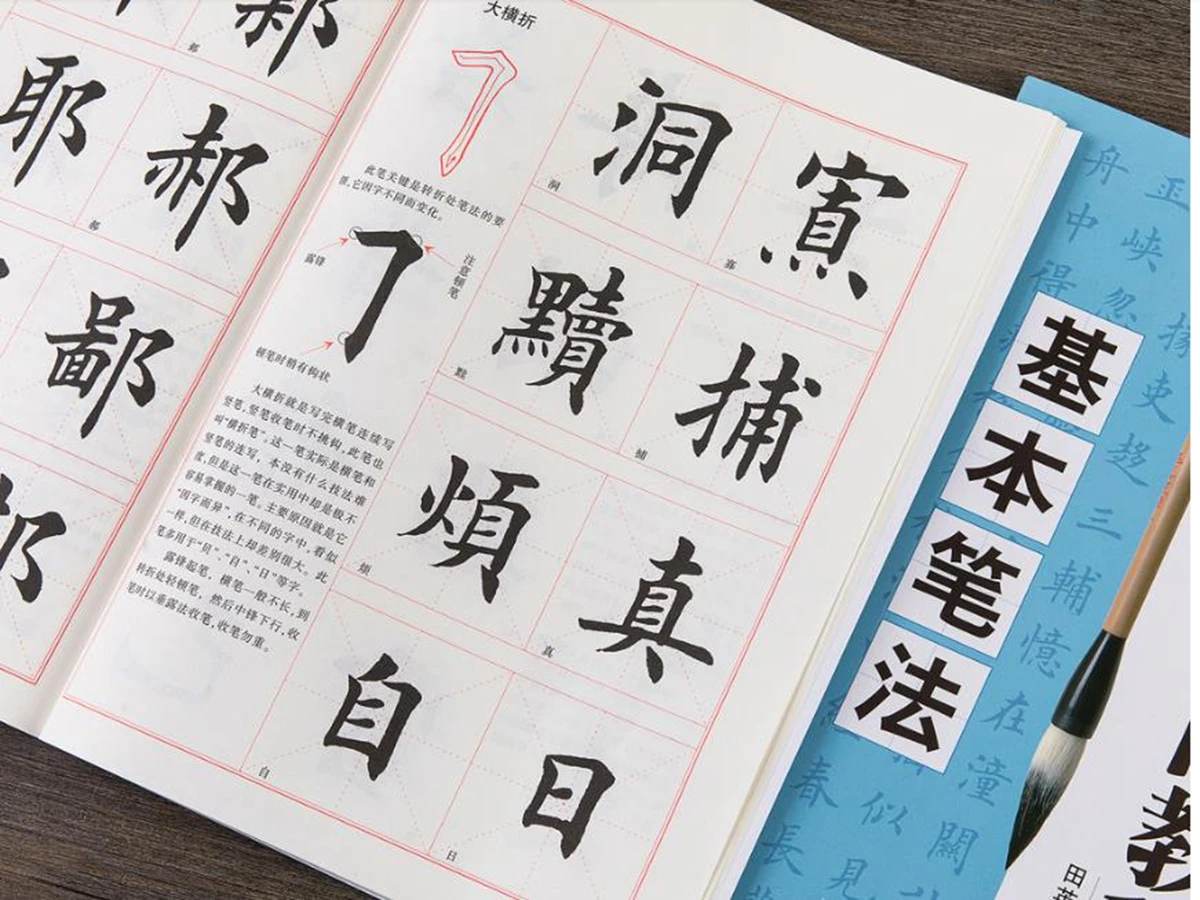 郝
耶
郝
鄙
大横折
此笔关键是转折处笔法的要
领,它因字不同而变化。
露锋
注意顿笔
顿笔时稍有钩状
大横折就是写完横笔连续写
竖笔,竖笔收笔时不挑钩,此笔也
叫“横折笔”。这一笔实际是横笔和
竖笔的连写,本没有什么技法难
度,但是这一笔在实用中却是极不
容易掌握的一笔。主要原因就是它
“因字而异”,在不同的字中,看似
一样,但在技法上却差别很大。此
笔多用于“贝”、“自”、“日”等字。
露锋起笔,横笔一般不长,到
转折处轻顿笔,然后中锋下行,收
笔时以垂露法收笔,收笔勿重。
洞
洞
黷
捕
捕
煩
烦
真
真
自
自
日
日
基本笔法
舟
中
峡
得
忽
掾
吏
趂
三
輔
憶
在
潼
關
似
春
長
見
教
田英